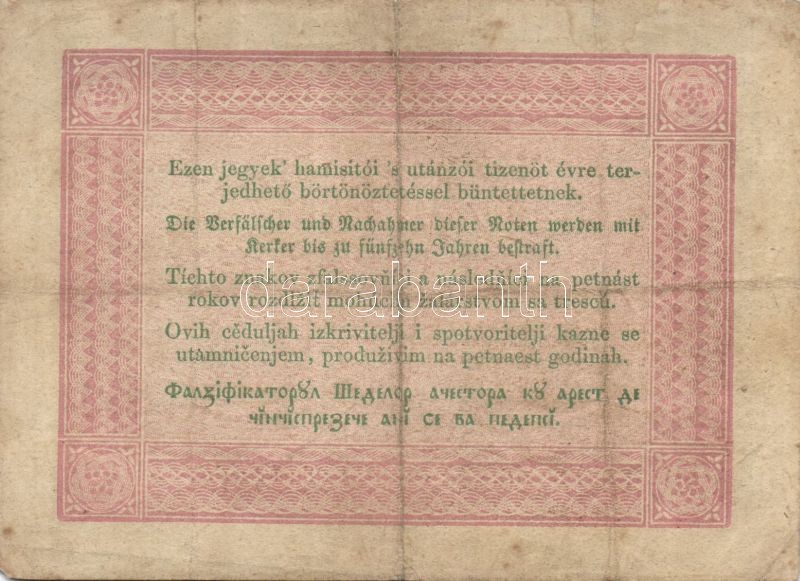 Ezen jegyek’ hamisítói ’s utánzói tizenöt évre ter-
jedhető börtönöztetéssel büntettetnek.
Die Verfälscher und Nachahmer dieser Noten werden mit
Kerker bis zu fünfzehn Jahren bestraft.
Tíchto znakov zfalšovňíci a následňíci na petnást
rokov rozdlžiť mohúcím žalárstvom sa trescú.
darabanth
Ovih cěduljah izkrivitelji i spotvoritelji kazne se
utámničenjem, produživim na petnaest godinah.
Фалꙁіфікаторꙋл Шеделор ачестора кꙋ арест де
чінчіспреꙁече ані се ва педепсі.